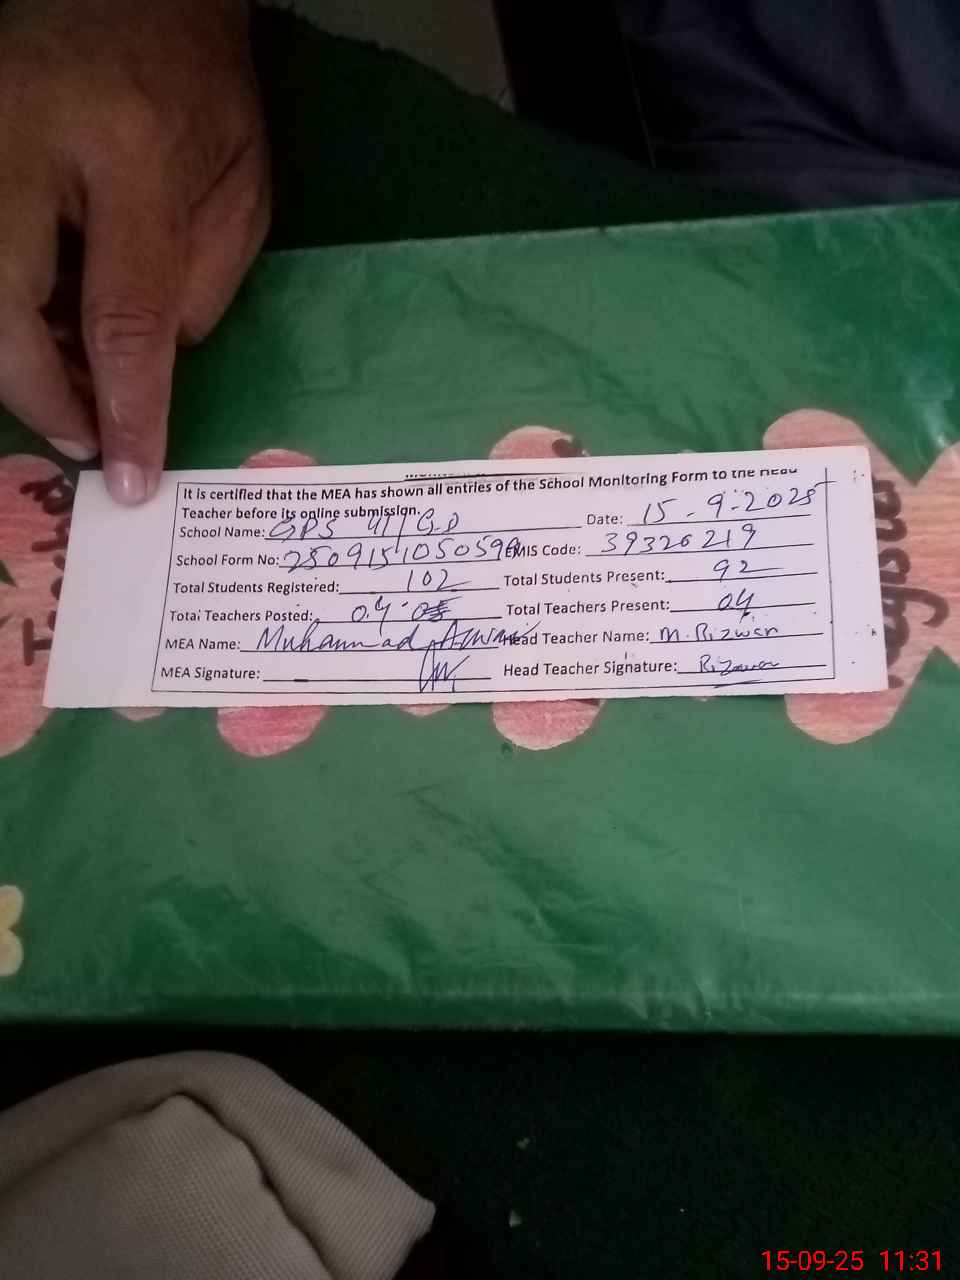 It is certified that the MEA has shown all entries of the School Monitoring Form to the Head
Teacher before its online submission.
School Name: GPS 41/GD Date: 15-9-2025
School Form No: EMIS Code: 39326219
Total Students Registered: 102 Total Students Present: 92
Total Teachers Posted: 04 Total Teachers Present: 04
MEA Name: Muhammad Head Teacher Name: M. Rizwan
MEA Signature: Head Teacher Signature: Rizwan
15-09-25 11:31